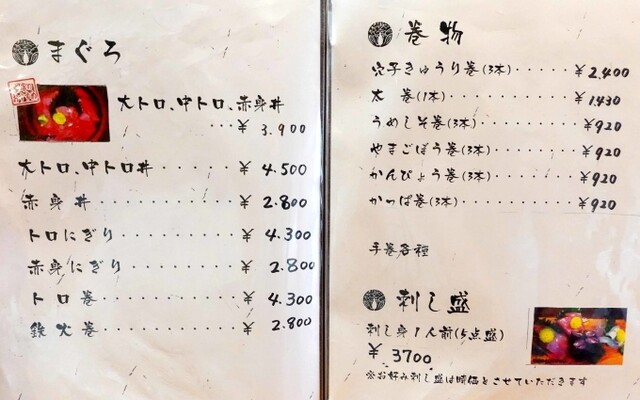 まぐろ
大トロ、中トロ、赤身丼
・・・¥3.900
大トロ、中トロ丼・・・・・・・・・¥4.500
赤身丼・・・・・・・・・・・・¥2.800
トロにぎり・・・・・・・・・・¥4.300
赤身にぎり・・・・・・・・・・¥2.800
トロ巻・・・・・・・・・・・・¥4.300
鉄火巻・・・・・・・・・・・・¥2.800
巻物
穴子きゅうり巻(3本)・・・・・・¥2.400
太巻(1本)・・・・・・・・・・・¥1.430
うめしそ巻(3本)・・・・・・・・¥920
やまごぼう巻(3本)・・・・・・・¥920
かんぴょう巻(3本)・・・・・・・¥920
かっぱ巻(3本)・・・・・・・・・¥920
手巻各種
刺し盛
刺し身1人前(5点盛)
¥3700
※お好み刺し盛は時価とさせていただきます